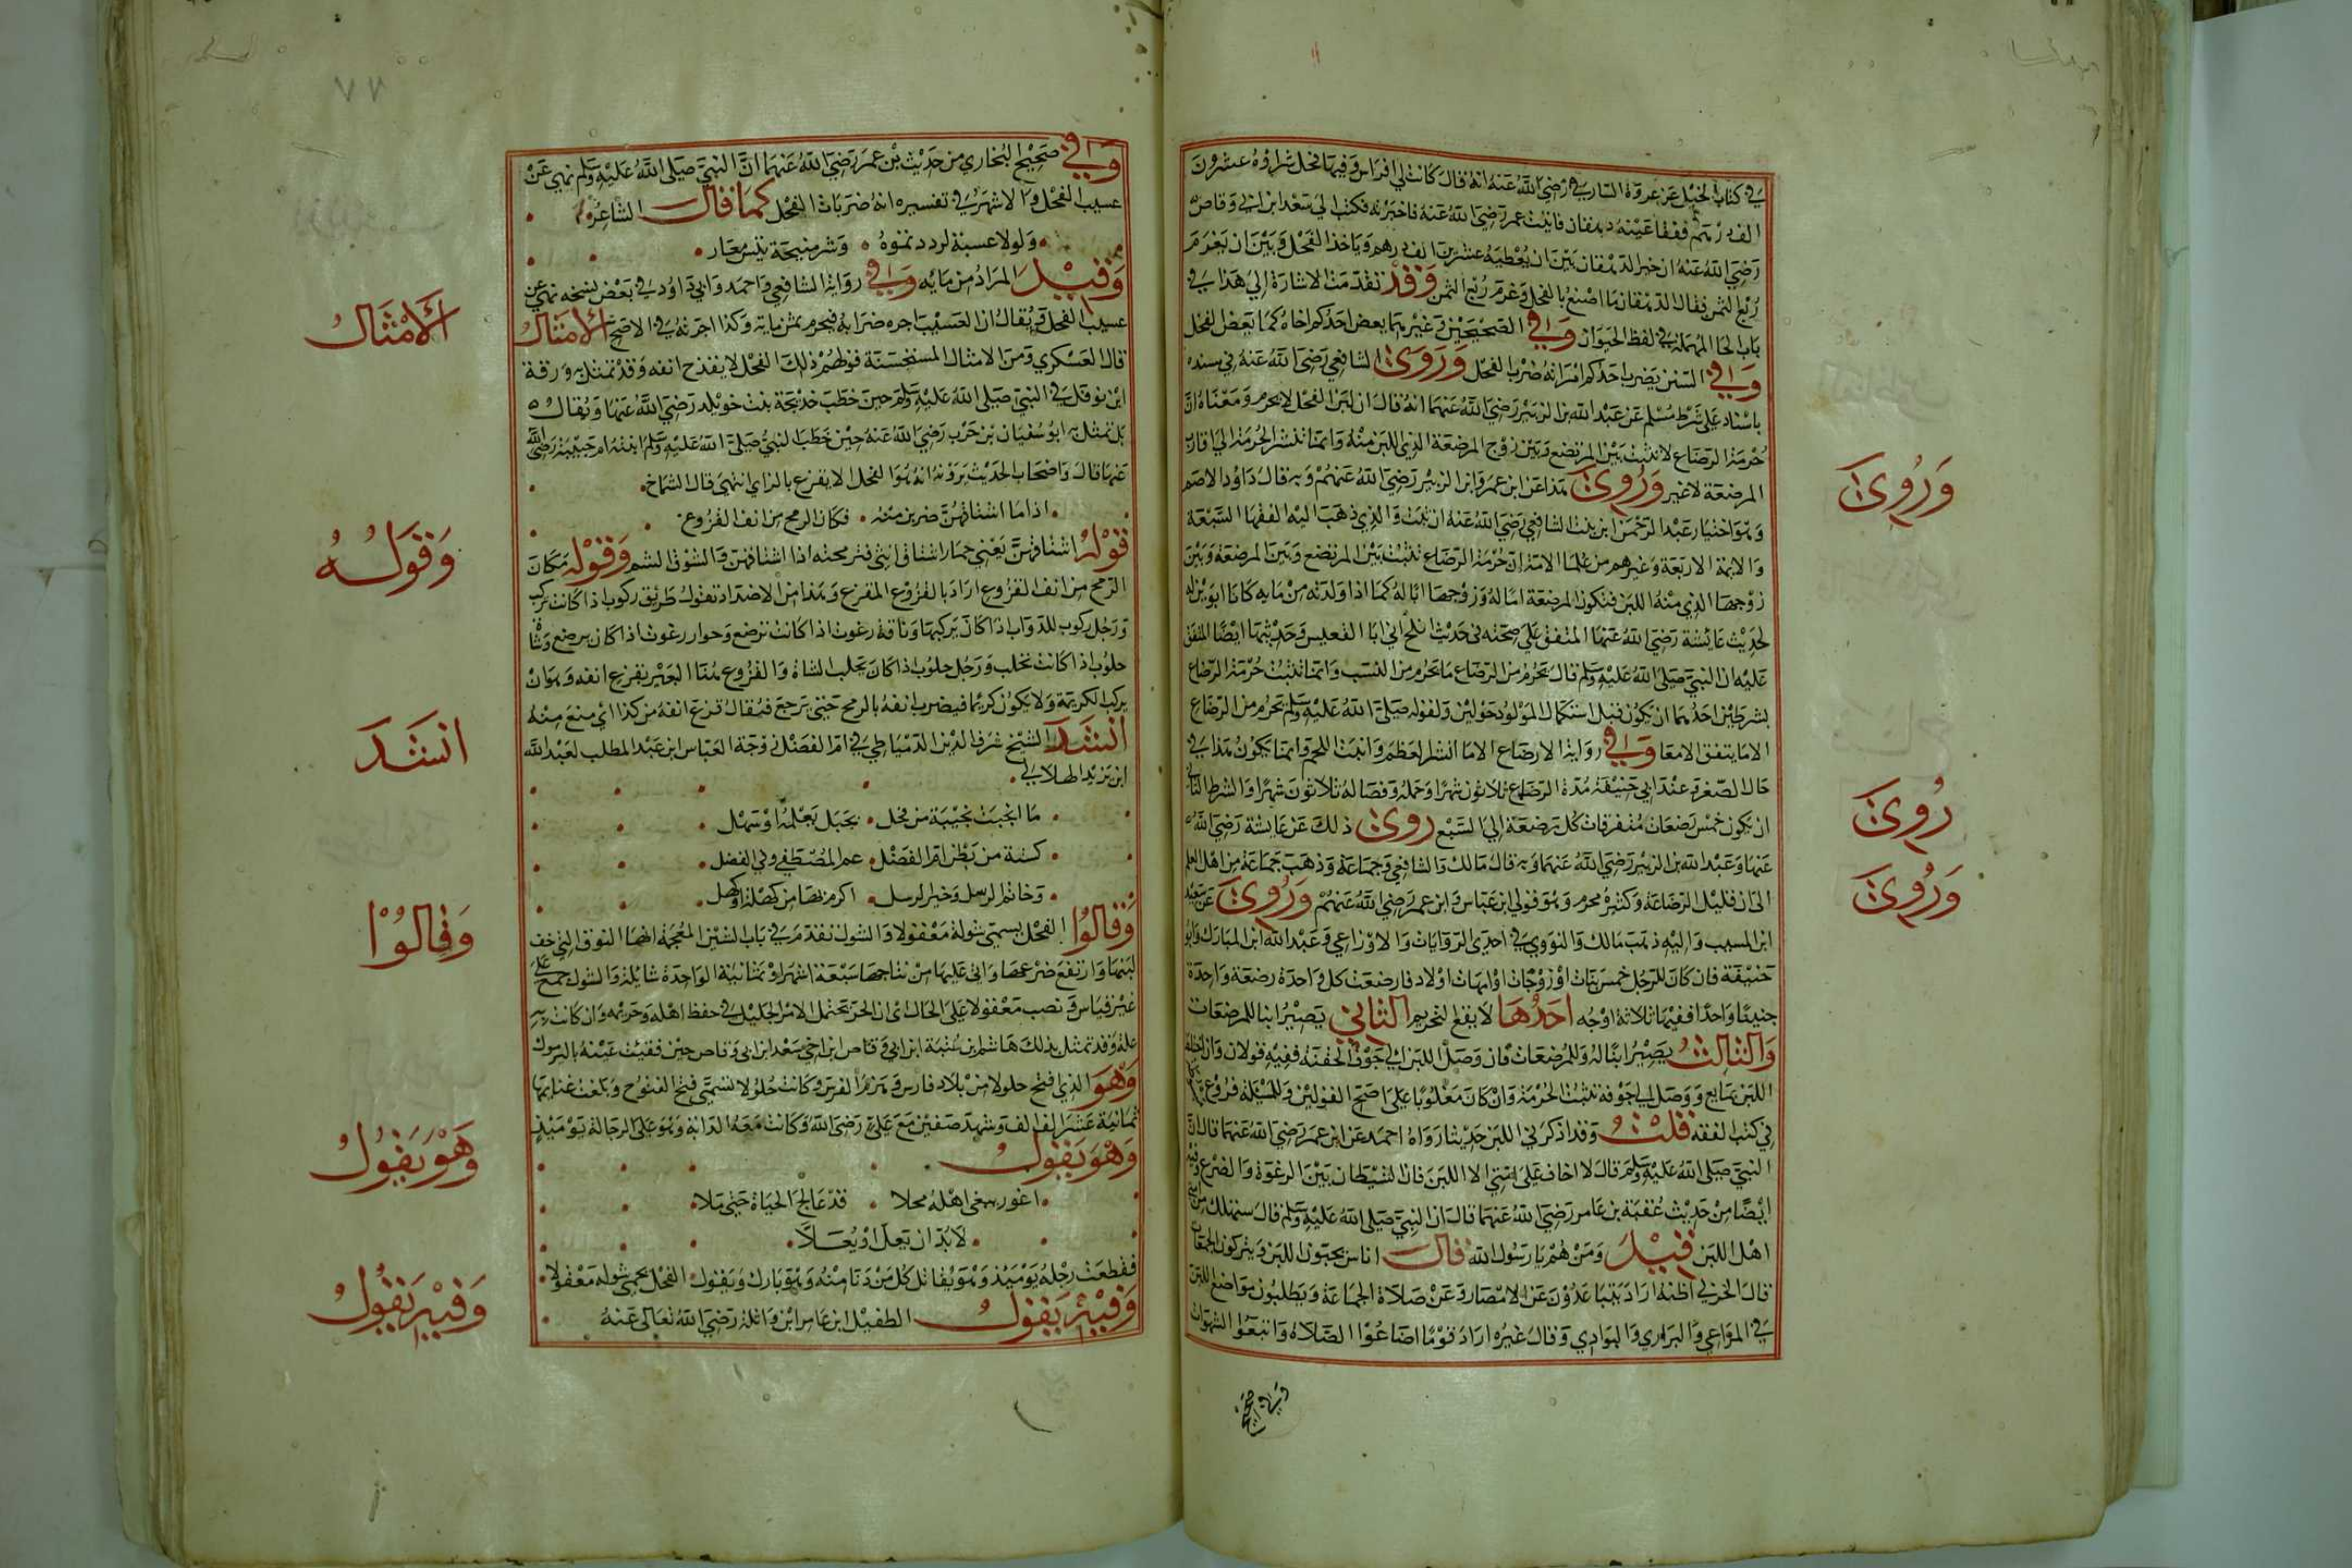 في كتاب الخيل عن عروة البارقي رضي الله عنه انه قال كانت لي افراس وفيها فحل شراؤه عشرون
الف درهم ففقا عينه دهقان فاتيت عمر رضي الله عنه فاخبرته فكتب الى سعد ابن ابي وقاص
رضي الله عنه ان خير الدهقان بين ان يعطيه عشرين الف درهم وياخذ الفحل وبين ان يغرم
ربع الثمن فقال الدهقان ما اصنع بالفحل وغرم ربع الثمن وقد تقدمت الاشارة الي هذا في
باب الحا المهملة في لفظ الحيوان وفي الصحيحين وغيرهما يعض احدكم اخاه كما يعض الفحل
وفي السنن يضرب احدكم امراته ضرب الفحل وروى الشافعي رضي الله عنه في مسنده
باسناد على شرط مسلم عن عبد الله بن الزبير رضي الله عنهما انه قال ان لبن الفحل لا يحرم ومعناه ان
حرمة الرضاع لا تثبت بين المرتضع وبين زوج المرضعة الذي اللبن منه وانما تنتشر الحرمة الي اقارب
المرضعة لا غير وروى هذا عن ابن عمر وابن الزبير رضي الله عنهم وبه قال داود الاصم
وهو اختيار عبد الرحمن ابن بنت الشافعي رضي الله عنه ان ثبت والذي ذهب اليه الفقها السبعة
والايمة الاربعة وغيرهم من علما الامة ان حرمة الرضاع تثبت بين المرتضع وبين المرضعة وبين
زوجها الذي منه اللبن فتكون المرضعة اما له وزوجها ابا له كما اذا ولدته من مايه كانا ابويه
لحديث عائشة رضي الله عنها المتفق على صحته في حديث افلح اخي ابا القعيس وحديثها ايضا المتفق
عليه ان النبي صلى الله عليه وسلم قال يحرم من الرضاع ما يحرم من النسب وانما تثبت حرمة الرضاع
بشرطين احدهما ان يكون قبل استكمال المولود حولين ولقوله صلى الله عليه وسلم يحرم من الرضاع
الا ما يتفق الامعا وفي رواية لا رضاع الا ما انشز العظم وانبت اللحم وانما يكون هذا في
حال الصغر وعند ابي حنيفة مدة الرضاع ثلاثون شهرا وحمله وفصاله ثلاثون شهرا والشرط الثاني
ان يكون خمس رضعات متفرقات كل رضعة الي الشبع روى ذلك عن عايشة رضي الله
عنها وعبد الله بن الزبير رضي الله عنهما وبه قال مالك والشافعي وجماعة وذهب جماعة من اهل العلم
الى ان قليل الرضاعة وكثيره محرم وهو قولي ابن عباس وابن عمر رضي الله عنهم وروى عن سعيد
ابن المسيب واليه ذهب مالك والنووي في احدى الروايات والاوزاعي وعبد الله ابن المبارك وابو
حنيفة فان كان للرجل خمس بنات او زوجات او امهات اولاد فارضعت كل واحدة رضعة واحدة
جنينا واحدا ففيها ثلاثة اوجه احدها لا يقع لتحريم الثاني يصير ابنا للمرضعات
والثالث يصير ابنا له وللمرضعات فان وصل اللبن الي جوف الحقنة ففيه قولان وان اختلط
اللبن بمايع ووصل الي جوفه تثبت الحرمة وان كان مغلوبا على اصح القولين وللمسيلة فروع
في كتب الفقه قلت وقد اذكرني اللبن حديثا رواه احمد عن ابن عمر رضي الله عنهما قال ان
النبي صلى الله عليه وسلم قال لا اخاف على امتي الا اللبن فان الشيطان بين الرغوة والضرع وفيه
ايضا من حديث عقبة بن عامر رضي الله عنهما قال ان النبي صلى الله عليه وسلم قال سيهلك من امتي
اهل اللبن قيل ومن هم يا رسول الله قال اناس يحبون اللبن ويتركون الجمعات
قال الحربي اظنه اراد يتباعدون عن الامصار وعن صلاة الجماعة ويطلبون مواضع اللبن
في المراعي والبراري والبوادي وقال غيره اراد قوما اضاعوا الصلاة واتبعوا الشهوات
وفي صحيح
وروى
روى
وروى
٧٧
وفي صحيح البخاري من حديث بن عمر رضي الله عنهما ان النبي صلى الله عليه وسلم نهي عن
عسيب الفحل والاشهر في تفسيره انه ضربات الفحل كما قال الشاعر
ولولا عسبه لرددتموه وشر منيحة تيس معار
وقيل المراد من مايه وفي رواية الشافعي واحمد وابي داود في بعض نسخه نهي عن
عسيب الفحل ويقال ان العسيب اجره ضرابه فيحرم بثمن مايه وكذا اجرته في الاصح الامثال
قال العسكري ومن الامثال المستحسنة قولهم ذلك الفحل لا يقدح انفه وقد تمثل به ورقة
ابن نوفل في النبي صلى الله عليه وسلم حين خطب خديجة بنت خويلد رضي الله عنها ويقال
بل تمثل به ابو سفيان بن حرب رضي الله عنه حين خطب النبي صلى الله عليه وسلم ابنته ام حبيبة رضي الله
عنها قال واصحاب الحديث يروونه انه هو الفحل لا يقرع بالراي انتهى قال الشماخ
اذا ما اشتاقهن ضربن منه فكان الرمح من انف القزوع
قوله اشتاقهن يعني حمارا اشتاق انثى فترمحنه اذا اشتاقهن والشوق الشم وقوله مكان
الرمح من انف القزوع اراد بالقزوع المقزع وهذا من الاضداد تقول طريق ركوب اذا كانت تركب
ورجل ركوب للدواب اذا كان يركبها وناقة رغوث اذا كانت ترضع وحوار رغوث اذا كان يرضع وشاة
حلوب اذا كانت تحلب ورجل حلوب اذا كان يحلب الشاة والقزوع هنا البعير يقزع انفه وهو ان
يركب الكريمة ولا يكون كريما فيضرب انفه بالرمح حتى يرجع فيقال قزع انفه من كذا اي منع منه
انشد الشيخ شرف الدين الدمياطي في ام الفضل زوجة العباس ابن عبد المطلب لعبد الله
ابن يزيد الهلالي
ما انجبت نجيبة من فحل بجبل نعلمه او سهل
كستة من بطن ام الفضل عم المصطفى وفي الفضل
وخاتم الرسل وخير الرسل اكرم بها من كهلة وكهل
وقالوا الفحل يسمى شولة معقولا والشول تقدم في باب الشين المعجمة انها النوق التي خف
لبنها وارتفع ضرعها واتى عليها من نتاجها سبعة اشهر او ثمانية الواحدة شايلة والشول جمع على
غير قياس ونصب معقولا على الحال اى ان الحر يحتمل الامر الجليل في حفظ اهله وحريمه وان كانت به
علة وقد تمثل بذلك هاشم بن عتبة ابن ابي وقاص ابن اخي سعد ابن ابي وقاص حين فقيت عينه باليرموك
وهو الذي فتح جلولا من بلاد فارس وهزم الفرس وكانت جلولا تسمى فتح الفتوح وبلغت غنايمها
ثمانية عشر الف الف وشهد صفين مع علي رضى الله وكانت معه الراية وهو على الرجالة يوميذ
وهو يقول
اعور يبغي اهله محلا قد عالج الحياة حتى ملا
لا بد ان يفل او يفلا
فقطعت رجله يوميذ وهو يقاتل كل من دنا منه وهو بارك ويقول الفحل يحمي شوله معقولا
وفيه يقول الطفيل ابن عامر ابن واثلة رضي الله تعالى عنه
الامثال
وقوله
انشد
وقالوا
وهو يقول
وفيه يقول